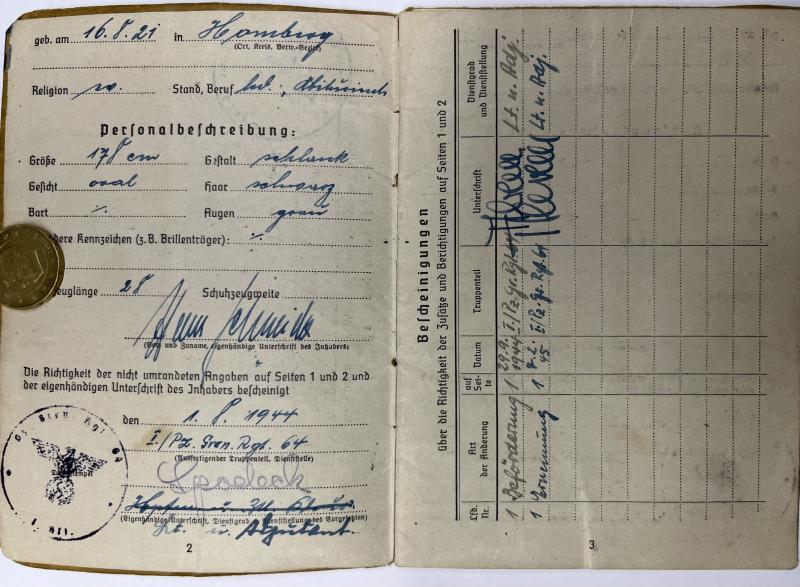 geb. am 16.8.21 in Homberg
(Ort, Kreis, Verw.-Bezirk)
Religion ev. Stand, Beruf led., Abiturient
Personalbeschreibung:
Größe 178 cm Gestalt schlank
Gesicht oval Haar schwarz
Bart ⁒ Augen grau
dere Kennzeichen (z.B. Brillenträger): ⁒
euglänge 28 Schuhzeugweite
(Vor- und Zuname, eigenhändige Unterschrift des Inhabers)
Die Richtigkeit der nicht umrandeten Angaben auf Seiten 1 und 2 und
der eigenhändigen Unterschrift des Inhabers bescheinigt
den 1.8.1944
I./Pz. Gren. Rgt. 64
(Ausfertigender Truppenteil, Dienststelle)
(Eigenhändige Unterschrift, Dienstgrad u. Dienststellung des Vorgesetzten)
Lt. u. Adjutant.
2
Bescheinigungen
über die Richtigkeit der Zusätze und Berichtigungen auf Seiten 1 und 2
Lfd. Nr. Art der Änderung auf Seite Datum Truppenteil Unterschrift Dienstgrad und Dienststellung
1 Beförderung 1 29.9. 1944 I/Pz. Gr. Rgt. 64 Lt. u. Adj.
1 Ernennung 1 7.2. 45 I/Pz. Gr. Rgt. 64 Lt. u. Adj.
3